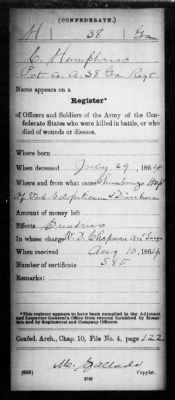 (CONFEDERATE.)
H 38 Ga
C. Humphries
Pvt Co. A. 38 Ga Regt
Name appears on a
Register*
of Officers and Soldiers of the Army of the Confederate States who were killed in battle, or who died of wounds or disease.
Where born
When deceased July 29, 1864
Where and from what cause
Amount of money left
Effects Sundries
In whose charge Chapman
When received Aug 10, 1864
Number of certificate 585
Remarks:
*This register appears to have been compiled in the Adjutant and Inspector General's Office from returns furnished by Hospitals and by Regimental and Company Officers.
Confed. Arch., Chap. 10, File No. 4, page 122
(635)
Copyist.